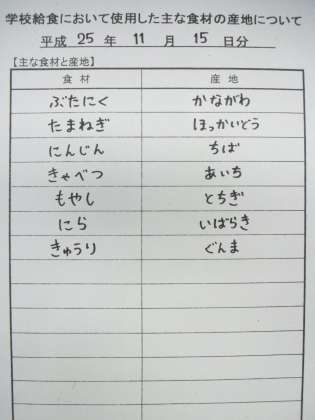 学校給食において使用した主な食材の産地について
平成 25 年 11 月 15 日分
【主な食材と産地】
食材 産地
ぶたにく かながわ
たまねぎ ほっかいどう
にんじん ちば
きゃべつ あいち
もやし とちぎ
にら いばらき
きゅうり ぐんま